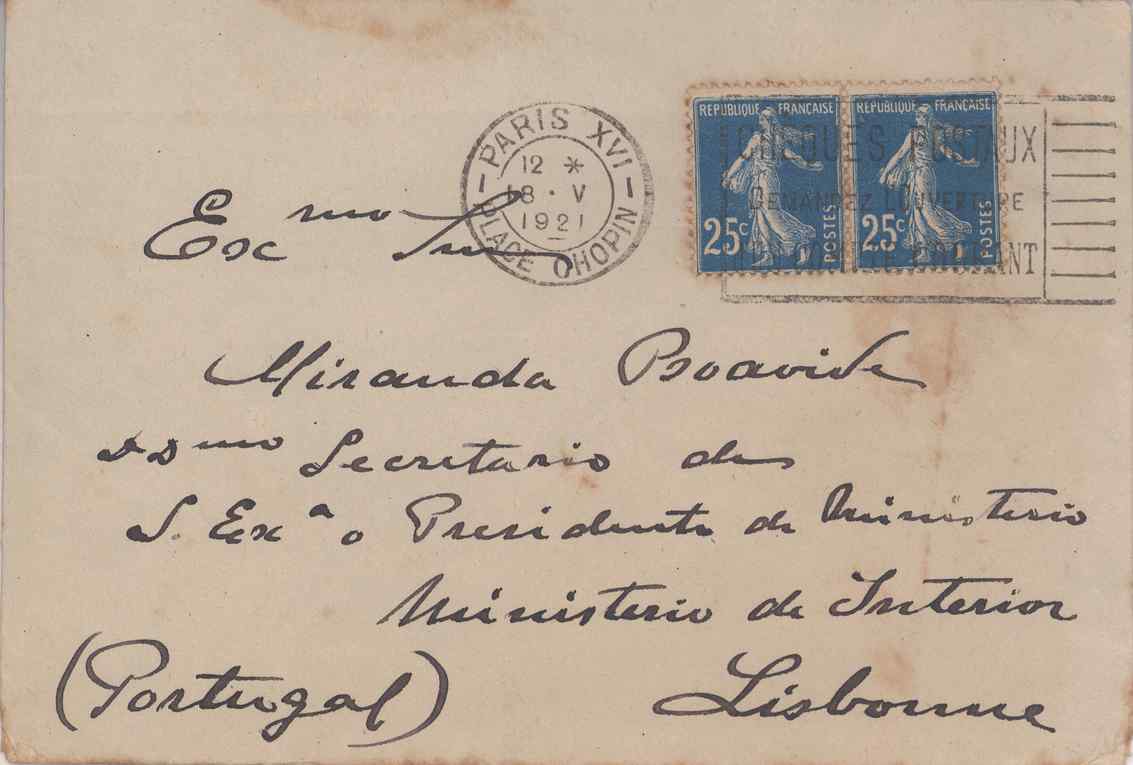 PARIS XVI
12 *
18 · V
1921
PLACE CHOPIN
REPUBLIQUE FRANÇAISE
25c
POSTES
REPUBLIQUE FRANÇAISE
25c
POSTES
CHEQUES POSTAUX
DEMANDEZ L'OUVERTURE
COURANT
Exmo Snr
Miranda Boavida
DDmo Secretario de
S. Exª o Presidente de Ministerio
Ministerio do Interior
(Portugal) Lisbonne